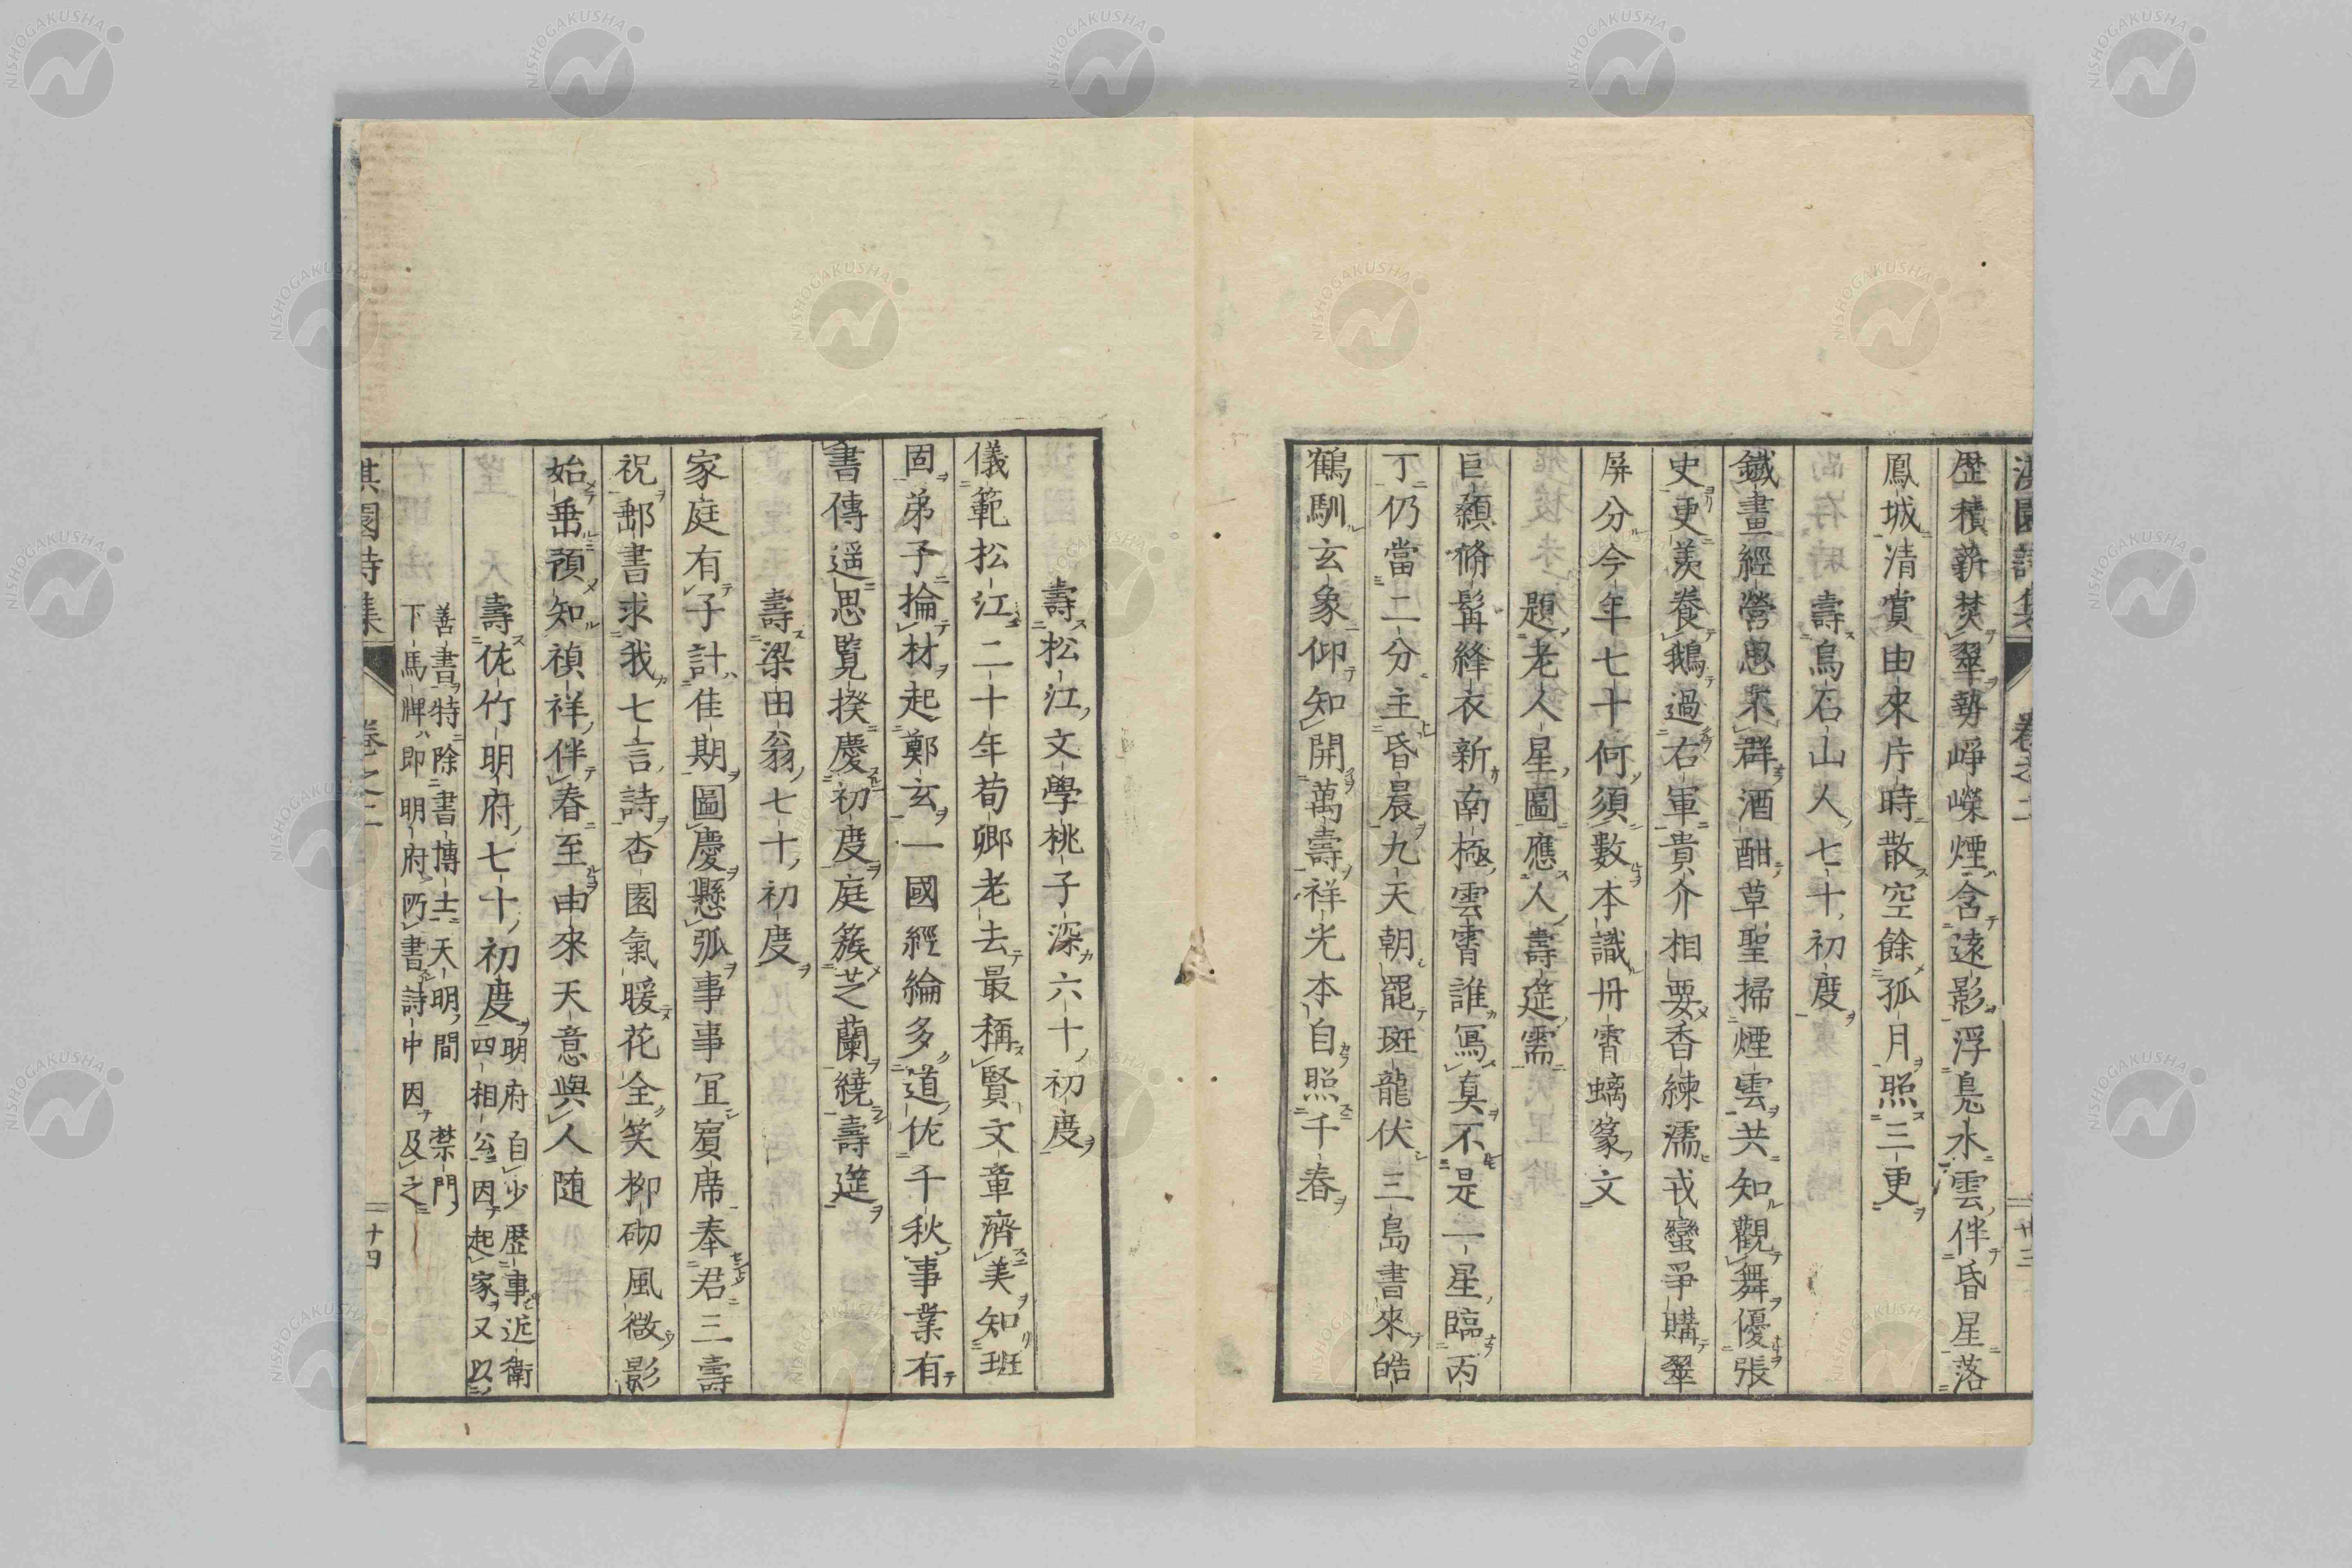 歴積薪焚翠勢崢嶸煙含遠影浮鳧水雲伴昏星落
鳳城清賞由來片時散空餘孤月照三更
壽烏石山人七十初度
鐵畫經營思不群酒酣草聖掃煙雲共知觀舞優張
史更羨養鵝過右軍貴介相要香練濡戎蠻爭購翠
屏分今年七十何須數本識丹霄螭篆文
題老人星圖應人壽筵需
巨顙脩髯絳衣新南極雲霄誰寫真不是一星臨丙
丁仍當二分主昏晨九天朝罷斑龍伏三島書來皓
鶴馴玄象仰知開萬壽祥光本自照千春
卷之二
廿三
壽松江文學桃子深六十初度
儀範松江二十年荀卿老去最稱賢文章濟美知班
固弟子掄材起鄭玄一國經綸多道佐千秋事業有
書傳遥思覧揆慶初度庭簇芝蘭繞壽筵
壽梁田翁七十初度
家庭有子計佳期圖慶懸弧事事宜賓席奉君三壽
祝郵書求我七言詩杏園氣暖花全笑柳砌風微影
始垂預知禎祥伴春至由來天意與人随
壽佐竹明府七十初度明府自少歴事近衛
四相公因起家又以
善書特除書博士天明間禁門
下馬牌即明府所書詩中因及之
淇園詩集
卷之二
二十四
NISHOGAKUSHA